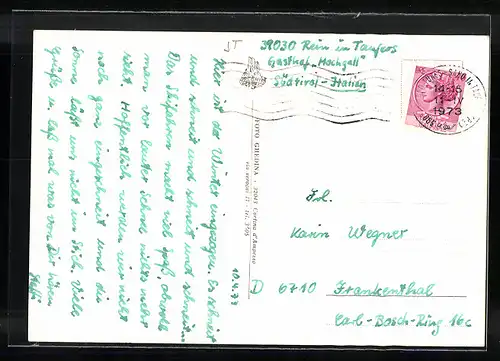 JT
39030 Rein in Taufers
Gasthof "Hochgall"
Südtirol - Italien
14-15
11-IV
1973
Hier ist der Winter eingezogen. Es schneit
und schneit und schneit und schneit...
Das Skifahren macht viel Spaß, obwohl
man vor lauter Schnee nichts mehr
sieht. Hoffentlich werden wir nicht
noch ganz eingeschneit und die
Sonne läßt uns nicht im Stich. Viele
Grüße u. laß mal was von Dir hören
Steffi
10.4.73
FOTO GHEDINA - 32043 Cortina d'Ampezzo
Frl.
Karin Wegner
D 6710 Frankenthal
Carl-Bosch-Ring 16c